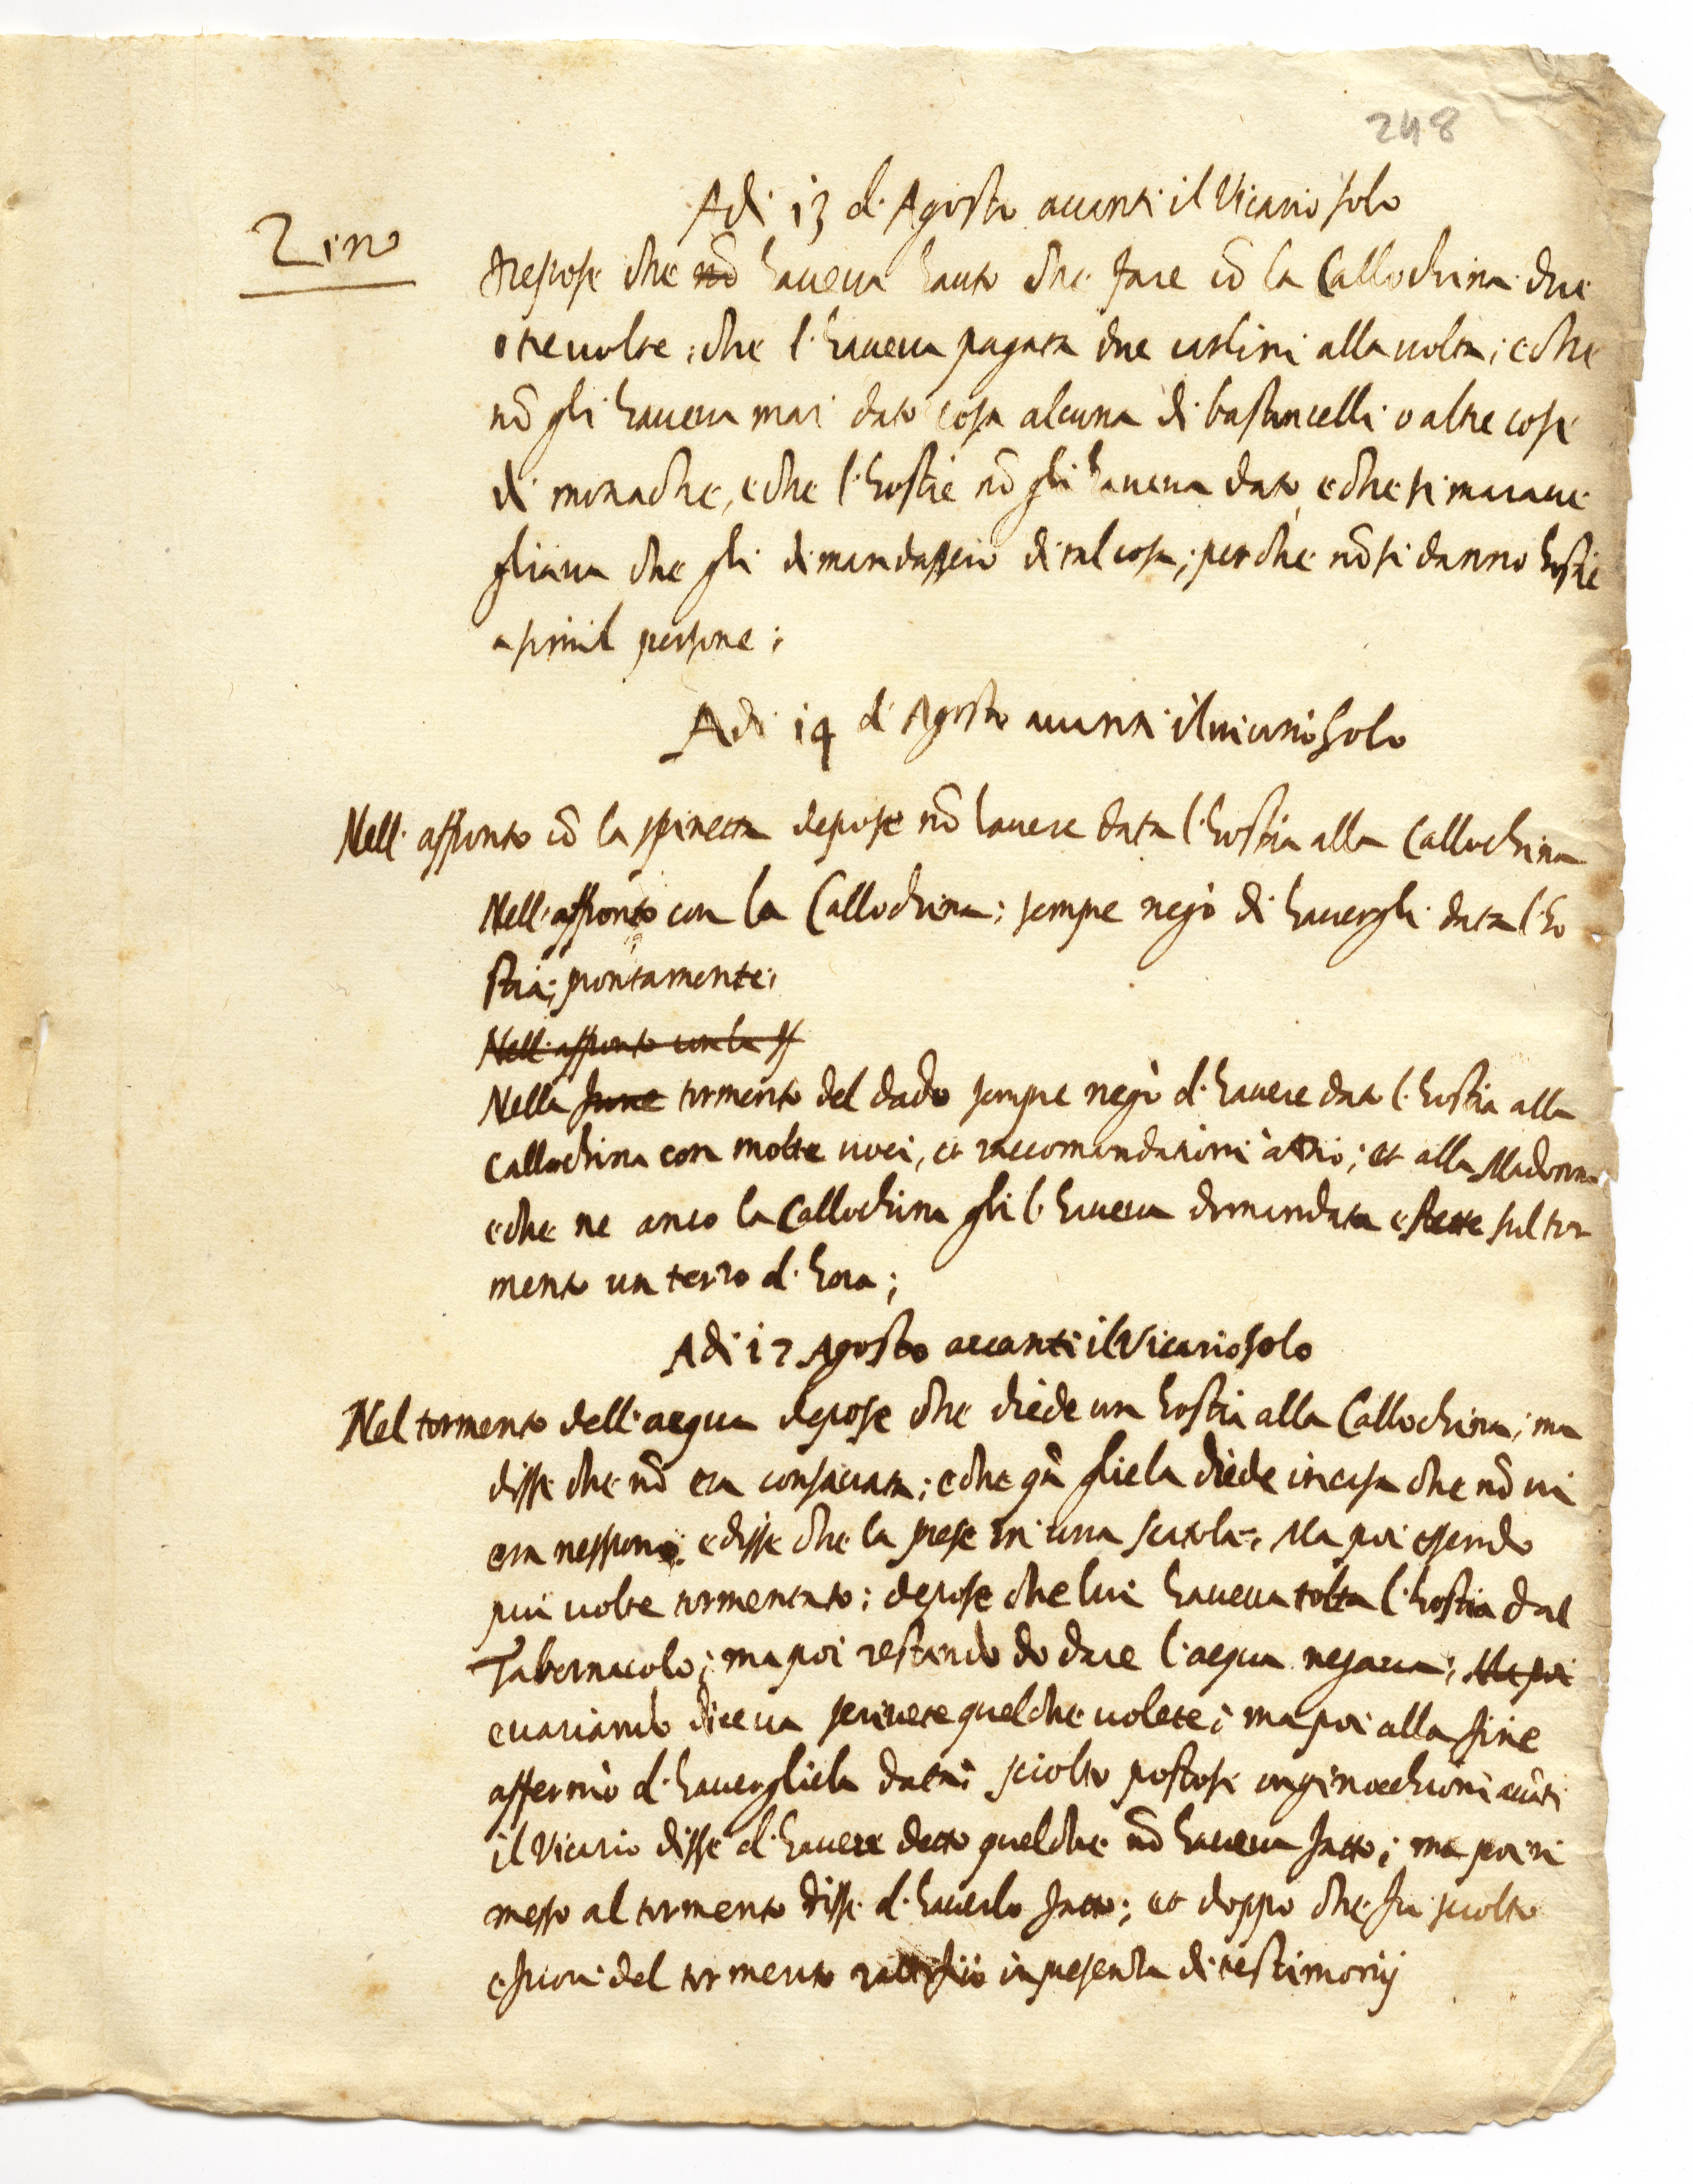 248
Adi 13 d'Agosto avanti il Vicario solo
Zeno
Depose che nō haveva hauto che fare cō la Callochina due
o tre volte; che l'haveva pagata due carlini alla volta; e che
nō gli haveva mai dato cosa alcuna di bastoncelli o altre cose
di monache, e che l'hostie nō gli haveva dato, e che si marave
gliava che gli dimandassero di tal cosa; perche nō si danno hostie
a simil persone;
Adi 14 d'Agosto avanti il vicario solo
Nell'affronto cō la spinetta depose nō havere data l'hostia alla Callochina
Nell'affronto con la Callochina; sempre negò di havergli data l'ho
stia; prontamente;
Nell'affronto con la sp
Nella fune tormento del dado sempre negò d'havere dato l'hostia alla
Callochina con molte voci, et raccomandationi à Dio; et alla Madonna
e che ne anco la Callochina gli l'haveva domandata e stette sul tor
mento un terzo d'hora;
Adi 17 Agosto avanti il Vicario solo
Nel tormento dell'acqua depose che diede un hostia alla Callochina; ma
disse che nō era consacrata; e che già gliela diede in casa che nō vi
era nessuno; e disse che la prese in una scatola; Ma poi essendo
più volte tormentato; depose che lui haveva tolta l'hostia dal
Tabernacolo; ma poi restando do dare l'acqua negava; Ma poi
e variando diceva scrivete quelche volete; ma poi alla fine
affermò d'havergliela data; sciolto postosi inginocchioni avāti
il Vicario disse d'havere detto quelche nō haveva fatto; ma poi ri
messo al tormento disse d'haverlo fatto; et doppo che fu sciolto
e fuori del tormento ratificò in presentia di testimonij